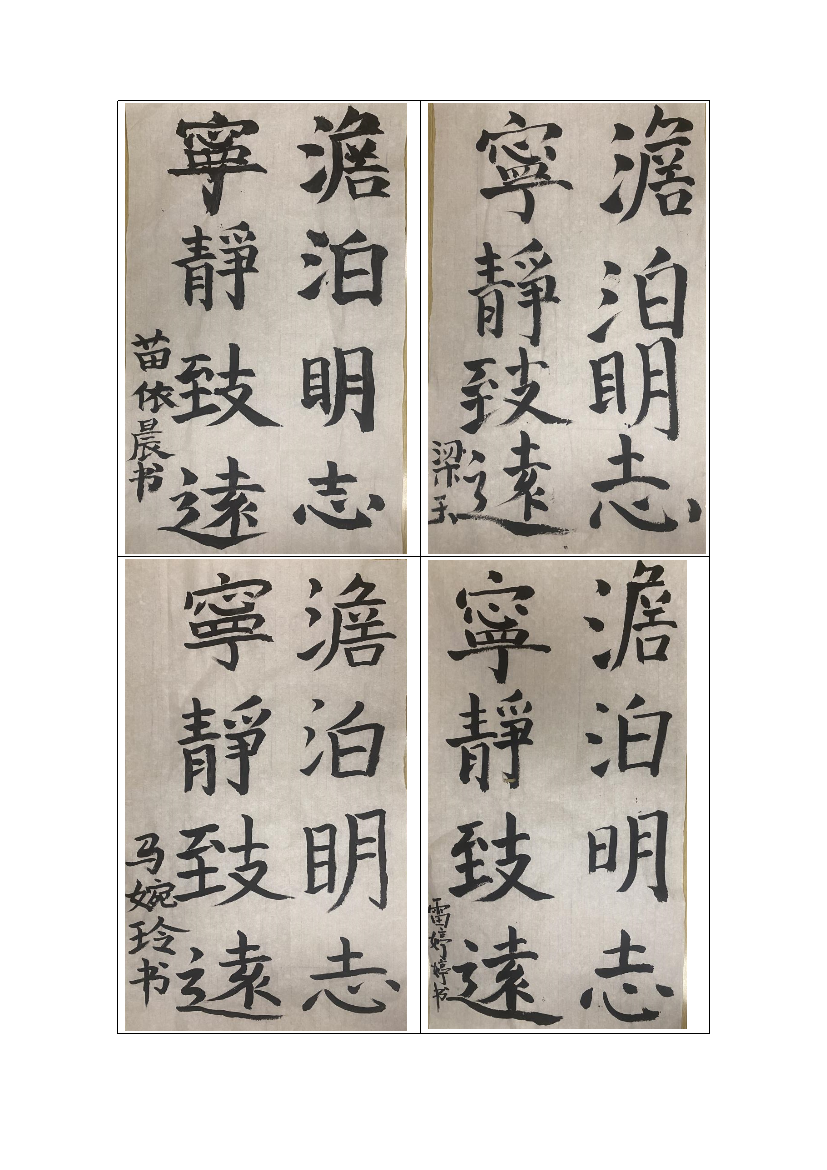 澹泊明志
寧靜致遠
苗依晨书
澹泊明志
寧靜致遠
梁玉
澹泊明志
寧靜致遠
马婉玲书
澹泊明志
寧靜致遠
雷婷婷书